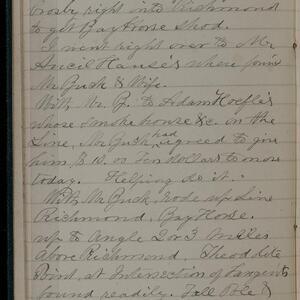 Crosby right into Richmond
to get Bay Horse Shod.
I went right over to Mr
Ancil Hanse's where join
Mr Gush & Wife.
With Mr. G. to Adam Hoefles
whose smoke house &c. in the
Line, Mr Gush had agreed to give
him $10.00 ten dollars to move
today. Helping do it.
With Mr Gush, rode up Line
Richmond, Bay Horse.
up to Angle 2 or 3 miles
above Richmond, Theodolite
Point, at Intersection of tangents
found readily. Tall Pole &